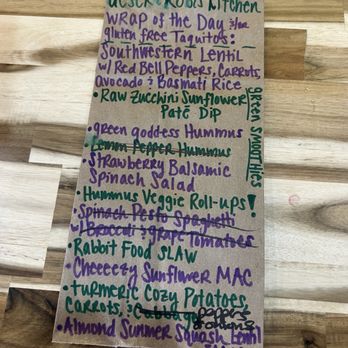 Desert Roots Kitchen
Wrap of the Day &/or
gluten free Taquitos:
Southwestern Lentil
w/ Red Bell Peppers, Carrots,
avocado & Basmati Rice
• Raw Zucchini Sunflower
Paté Dip
• green goddess Hummus
Lemon Pepper Hummus
• Strawberry Balsamic
Spinach Salad
• Hummus Veggie Roll-ups!
• Spinach Pesto Spaghetti
w/ Broccoli & grape Tomatoes
• Rabbit Food SLAW
• Cheeeezy Sunflower MAC
• Turmeric Cozy Potatoes,
Carrots, & Cabbage peppers
& onions
• Almond Summer Squash Lentil
green Smoothies